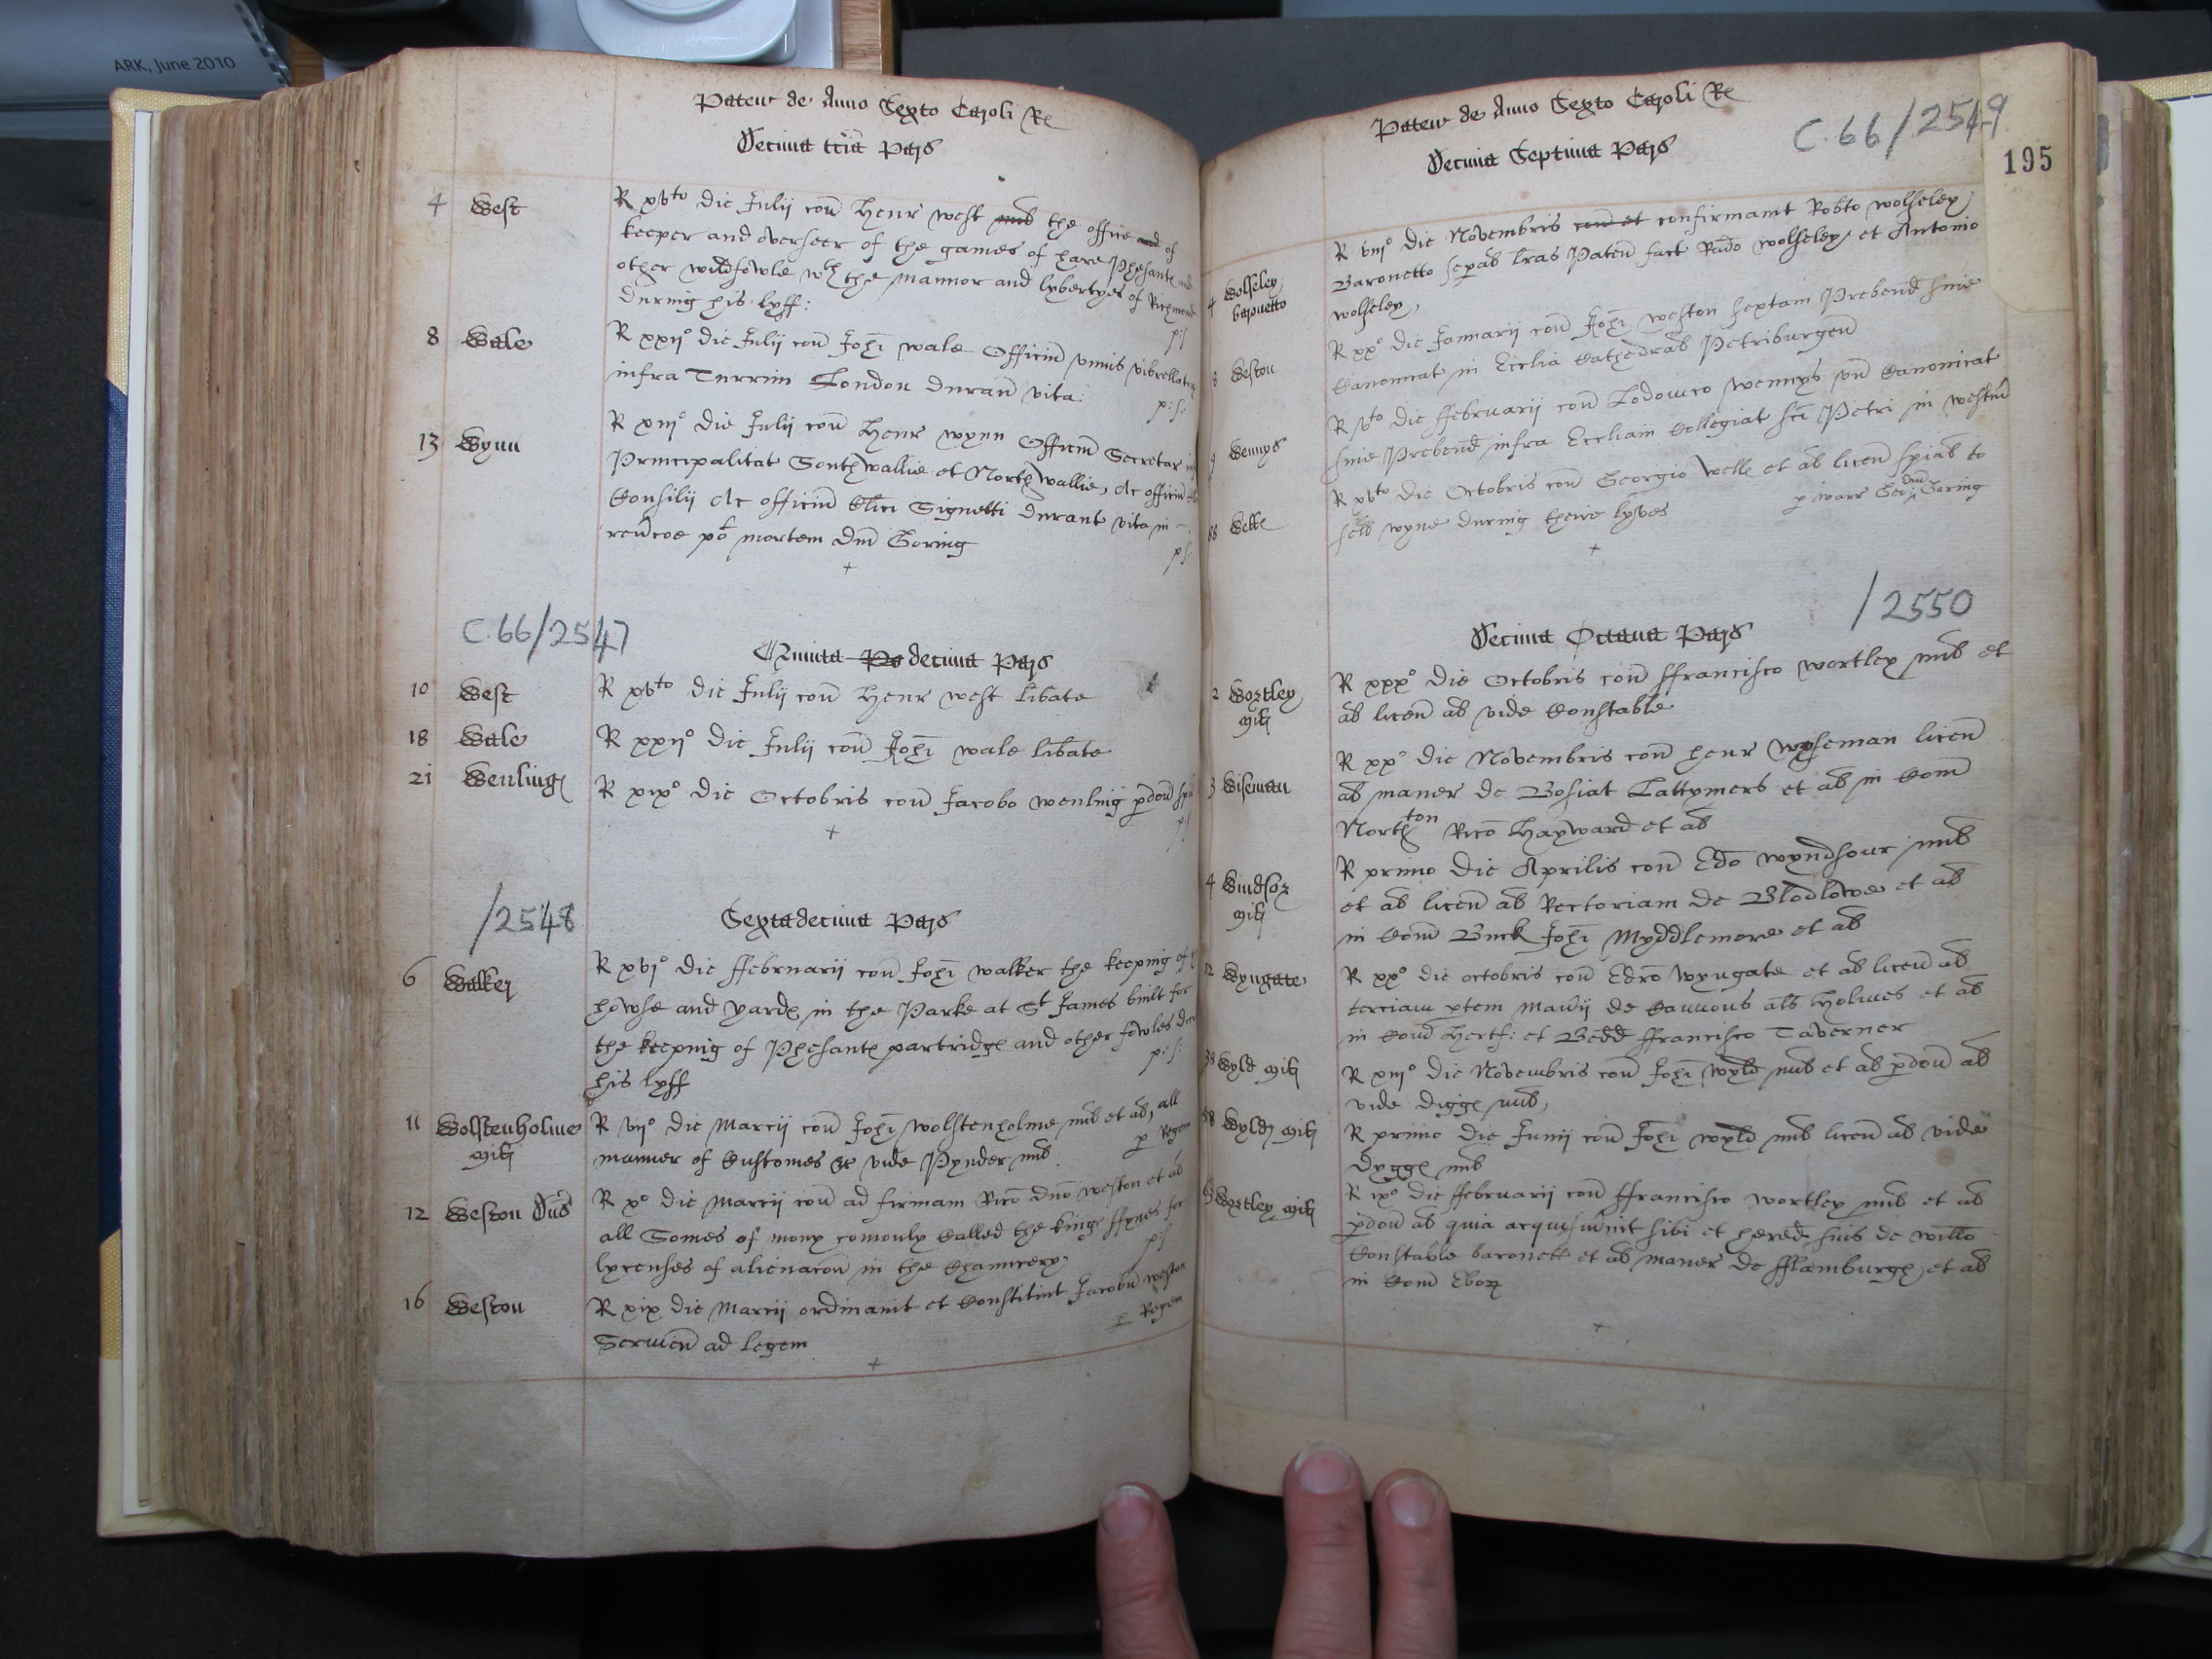 ARK, June 2010
Patew de Anno Sexto Caroli Re
Decima tcia Pars
4 West R xvto die Julij con Henr west the office of
keeper and overseer of the games of hare Phesante and
other wildfowle wth the mannor and lybertyes of Richmond
during his lyff:
p:s
8 Wale R xxijo die Julij con Johi wale Officiu unius vibrellator
infra Turrim London duran vita:
p:s:
13 Wynn R xiijo die Julij con Henr wynn Officiu Secretar
Principalitat Southwallie et Northwallie, Ac officiu
Consilij Ac officiu Clici Signetti durant vita in
revcoe po mortem dni Goring
p s:
C.66/2547
Quinta decima Pars
10 West R xvto die Julij con Henr west libate
18 Wale R xxijo die Julij con Johi wale libate
21 Wenling R xixo die Octobris con Jacobo wenling pdon
ps
/2548
Sextadecima Pars
6 Walker R xvjo die ffebruarij con Johi walker the keeping of
howse and yarde in the Parke at St James built for
the keepnig of Phesante partridge and other fowles
his lyff
p:s:
11 Wolstenholme R vijo die Marcij con Johi wolstenholme mil et al, all
mil manner of Customes &c vide Pynder mil
p Regem
12 Weston Dns R xo die Marcij con ad firmam Rico dno weston et al
all Somes of mony comonly Called the kinge ffynes for
lycenses of alienacon in the Chauncery
ps
16 Weston R xix die Marcij ordinauit et Constituit Jacobu weston
p Regem
Seruien ad legem
Patew de Anno Sexto Caroli Re
C.66/2549
Decima Septima Pars
195
4 Wolseley R viijo die Novembris con et confirmamt Robto wolseley
baronetto Baronetto sepal lras Paten fact Rado wolseley et Antonio
wolseley,
8 Weston R xxo die Januarij con Johi weston sextam Prebend sine
Canonicat in Ecclia Cathedral Petriburgen
9 Wemys R vto die ffebruarij con Lodowico wemys un Canonicat
sine Prebend infra Eccliam Collegiat sci Petri in westm
Welle R xvto die Octobris con Georgio welle et al licen spial to
sell wyne during theire lyves
p warr Geo: dni Goring
/2550
Decima Octava Pars
2 Wortley R xxxo die Octobris con ffrancisco wortley mil et
mil al licen al vide Constable
3 Wiseman R xxo die Novembris con henr wyseman licen
al maner de Bosiat Lattymers et al in Com
Northton Rico Hayward et al
4 Windsor R primo die Aprilis con Edo wyndsour mil
mil et al licen al Rectoriam de Blodlowe et al
in Com Buck Johi Myddlemore et al
12 Wyngate R xxo die octobris con Edro wyngate et al licen al
terciam ptem Manij de Cannons als Holmes et al
in Com Hertf: et Bedd ffrancisco Taverner
38 Wyld mil R xiijo die Novembris con Johi wyld mil et al pdon al
vide digge mil,
58 Wyld mil R primo die Junij con Johi wyld mil licen al vide
dygge mil
63 Wortley mil R ixo die ffebruarij con ffrancisco wortley mil et al
pdon al quia acquisiuit sibi et hered suis de willo
Constable baronett et al maner de fflamburge et al
in Com Ebor